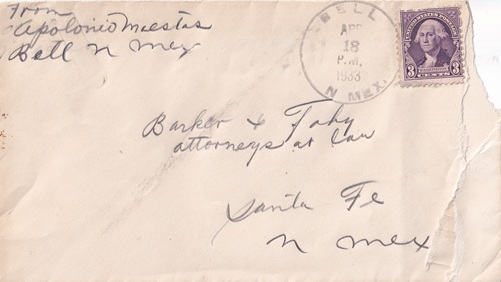 From
Apolonio Maestas
Bell N Mex
BELL
APR
18
P.M.
1933
N. MEX.
UNITED STATES POSTAGE
3 3
CENTS
Barker & Fahy
attorneys at law
Santa Fe
N Mex